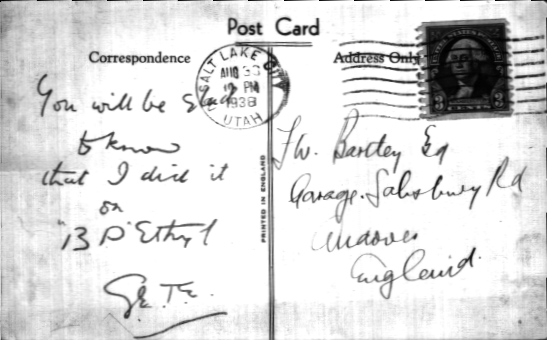 Post Card
Correspondence
Address Only
SALT LAKE CITY
AUG 30
PM
1938
UTAH
UNITED STATES POSTAGE
3 CENTS 3
You will be glad
to know
that I did it
on
"B P" Ethyl
G.E.T.E.
PRINTED IN ENGLAND
F.W. Bartey Eq
Garage. Salisbury Rd
Andover
England.